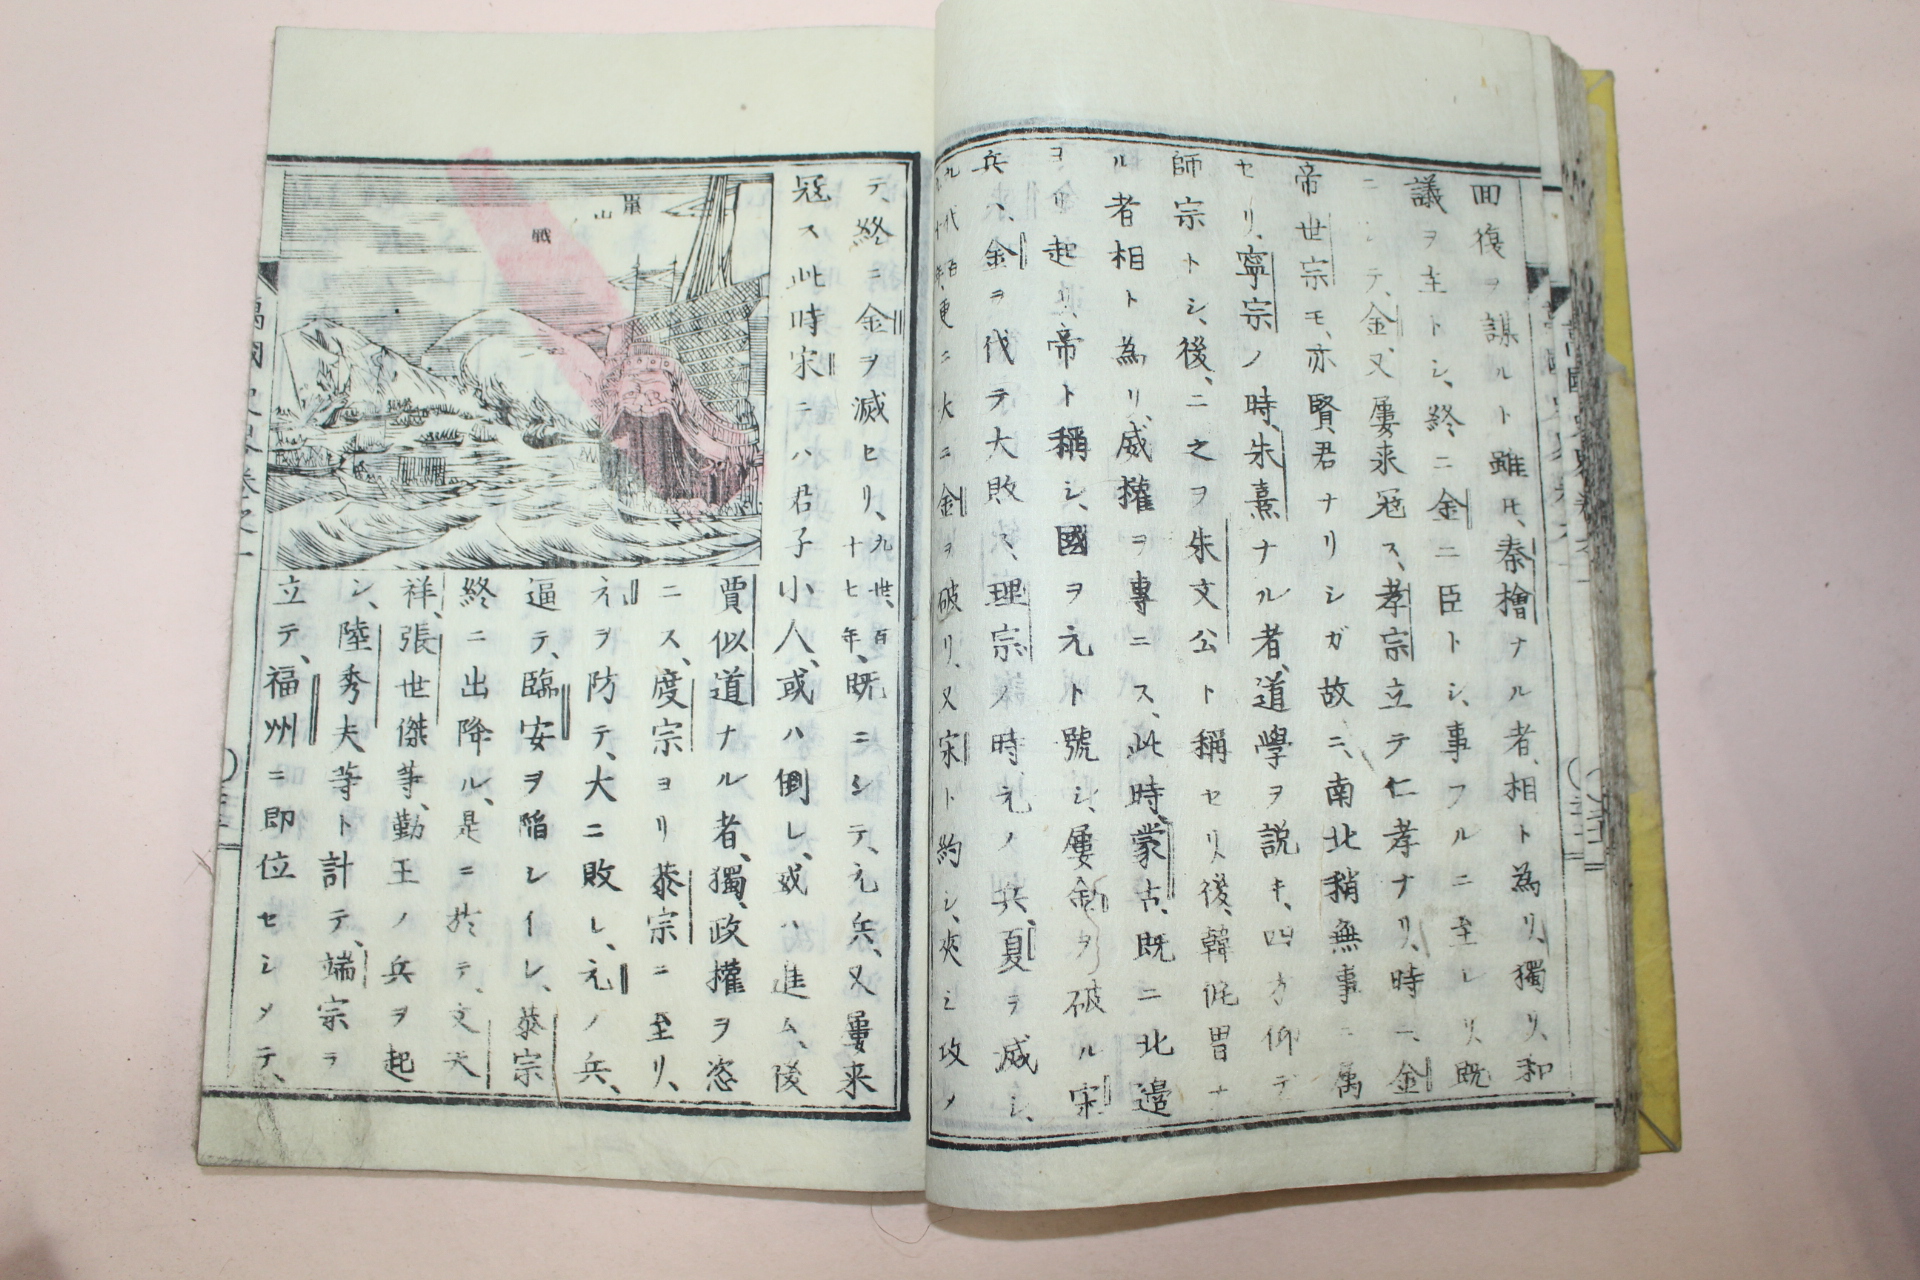 回復ヲ謀ルト雖モ、秦檜ナル者、相ト為リ、獨リ、和
議ヲ主トシ、終ニ金ニ臣トシ、事フルニ至レリ、既
ニシテ、金又、屢来冦ス、孝宗立テ仁孝ナリ、時ニ、金
帝世宗モ、亦賢君ナリシガ故ニ、南北稍無事ニ属
セリ、寧宗ノ時、朱熹ナル者、道學ヲ説キ、四方仰デ
師宗トシ、後、ニ之ヲ朱文公ト稱セリ、後、韓侂冑ナ
ル者相ト為リ、威權ヲ專ニス、此時、蒙古、既ニ北邉
ヨリ起リ、帝ト稱シ、國ヲ元ト號シ、屢金ヲ破ル宋
兵、金ヲ伐テ大敗ス、理宗ノ時、元ノ兵、夏ヲ滅シ、
更ニ大ニ金ヲ破リ、又宋ト約シ、夾ミ攻メ
テ、終ニ金ヲ滅セリ、九世、百十七年、既ニシテ、元兵、又屢来
冦ス此時宋テハ君子小人、或ハ倒レ、或ハ進ム、後
賈似道ナル者、獨、政權ヲ恣
ニス、度宗ヨリ恭宗ニ至リ、
元ヲ防テ、大ニ敗レ、元ノ兵、
逼テ、臨安ヲ陷シイレ、恭宗
終ニ出降ル、是ニ於テ、文天
祥、張世傑等、勤王ノ兵ヲ起
シ、陸秀夫等ト計テ、端宗ヲ
立テ、福州ニ即位セシメテ、
厓山戦
萬國史畧巻之一